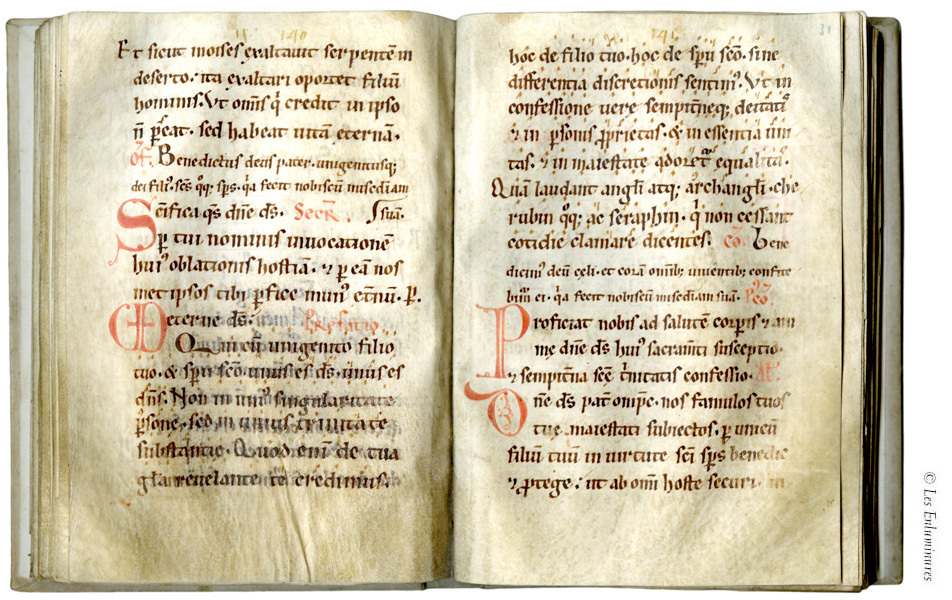 140
Et sicut moises exaltauit serpentē in
deserto · ita exaltari oportet filiū
hominis. Vt om̄is q̇ credit in ipso
n̄ ꝑeat · sed habeat uitā eternā ·
Of. Benedictus deus pater · unigenitusq;
dei filiꝰ · sc̄s q̊q; sp̄s · q̇a fecit nobiscū misedīam
Scīfica q̄s dn̄e ds̄ · Secr̄. suā ·
ꝑ tui nominis inuocationē
huiꝰ oblationis hostiā · ⁊ ꝑ eā nos
met ipsos tibi ꝑfice munꝰ et̄nū · P.
eterne ds̄ · Prefatio
Qui cū unigenito filio
tuo · & sp̄u sc̄o · unus es ds̄ · unus es
dn̄s · Non in uniꝰ singularitate
ꝑsone · sed in unius trinitate
substantie · Quod enī de tua
gl̄a reuelante te credimus ·
141
31
hoc de filio tuo · hoc de sp̄u sc̄o · sine
differentia discretionis sentimꝰ · Vt in
confessione uere sempit̄neq; deitatis
& in ꝑsonis ꝓprietas · & in essentia unı
tas · ⁊ in maiestate adoret᷑ equalitas ·
Quā laudant angl̄i atq; archangl̄i · che
rubin q̊q; ac seraphin · q̇ non cessant
cotidie clamare dicentes · Cō. Bene
dicimꝰ deū celi · et corā om̄ib; uiuentib; confite
bimꝰ ei · q̇a fecit nobiscū misedīam suā · Pꝰ cō
Proficiat nobis ad salutē corꝑis ⁊ ani
me dn̄e ds̄ huiꝰ sacram̄ti susceptio ·
⁊ sempit̄na sc̄e t̓nitatis confessio · Al'
Dn̄e ds̄ pat̄ om̄ps · nos famulos tuos
tue maiestati subiectos · ꝑ unicū
filiū tuū in uirtute sc̄i sp̄s benedic
⁊ ꝓtege · ut ab om̄i hoste securi · in
© Les Enluminures